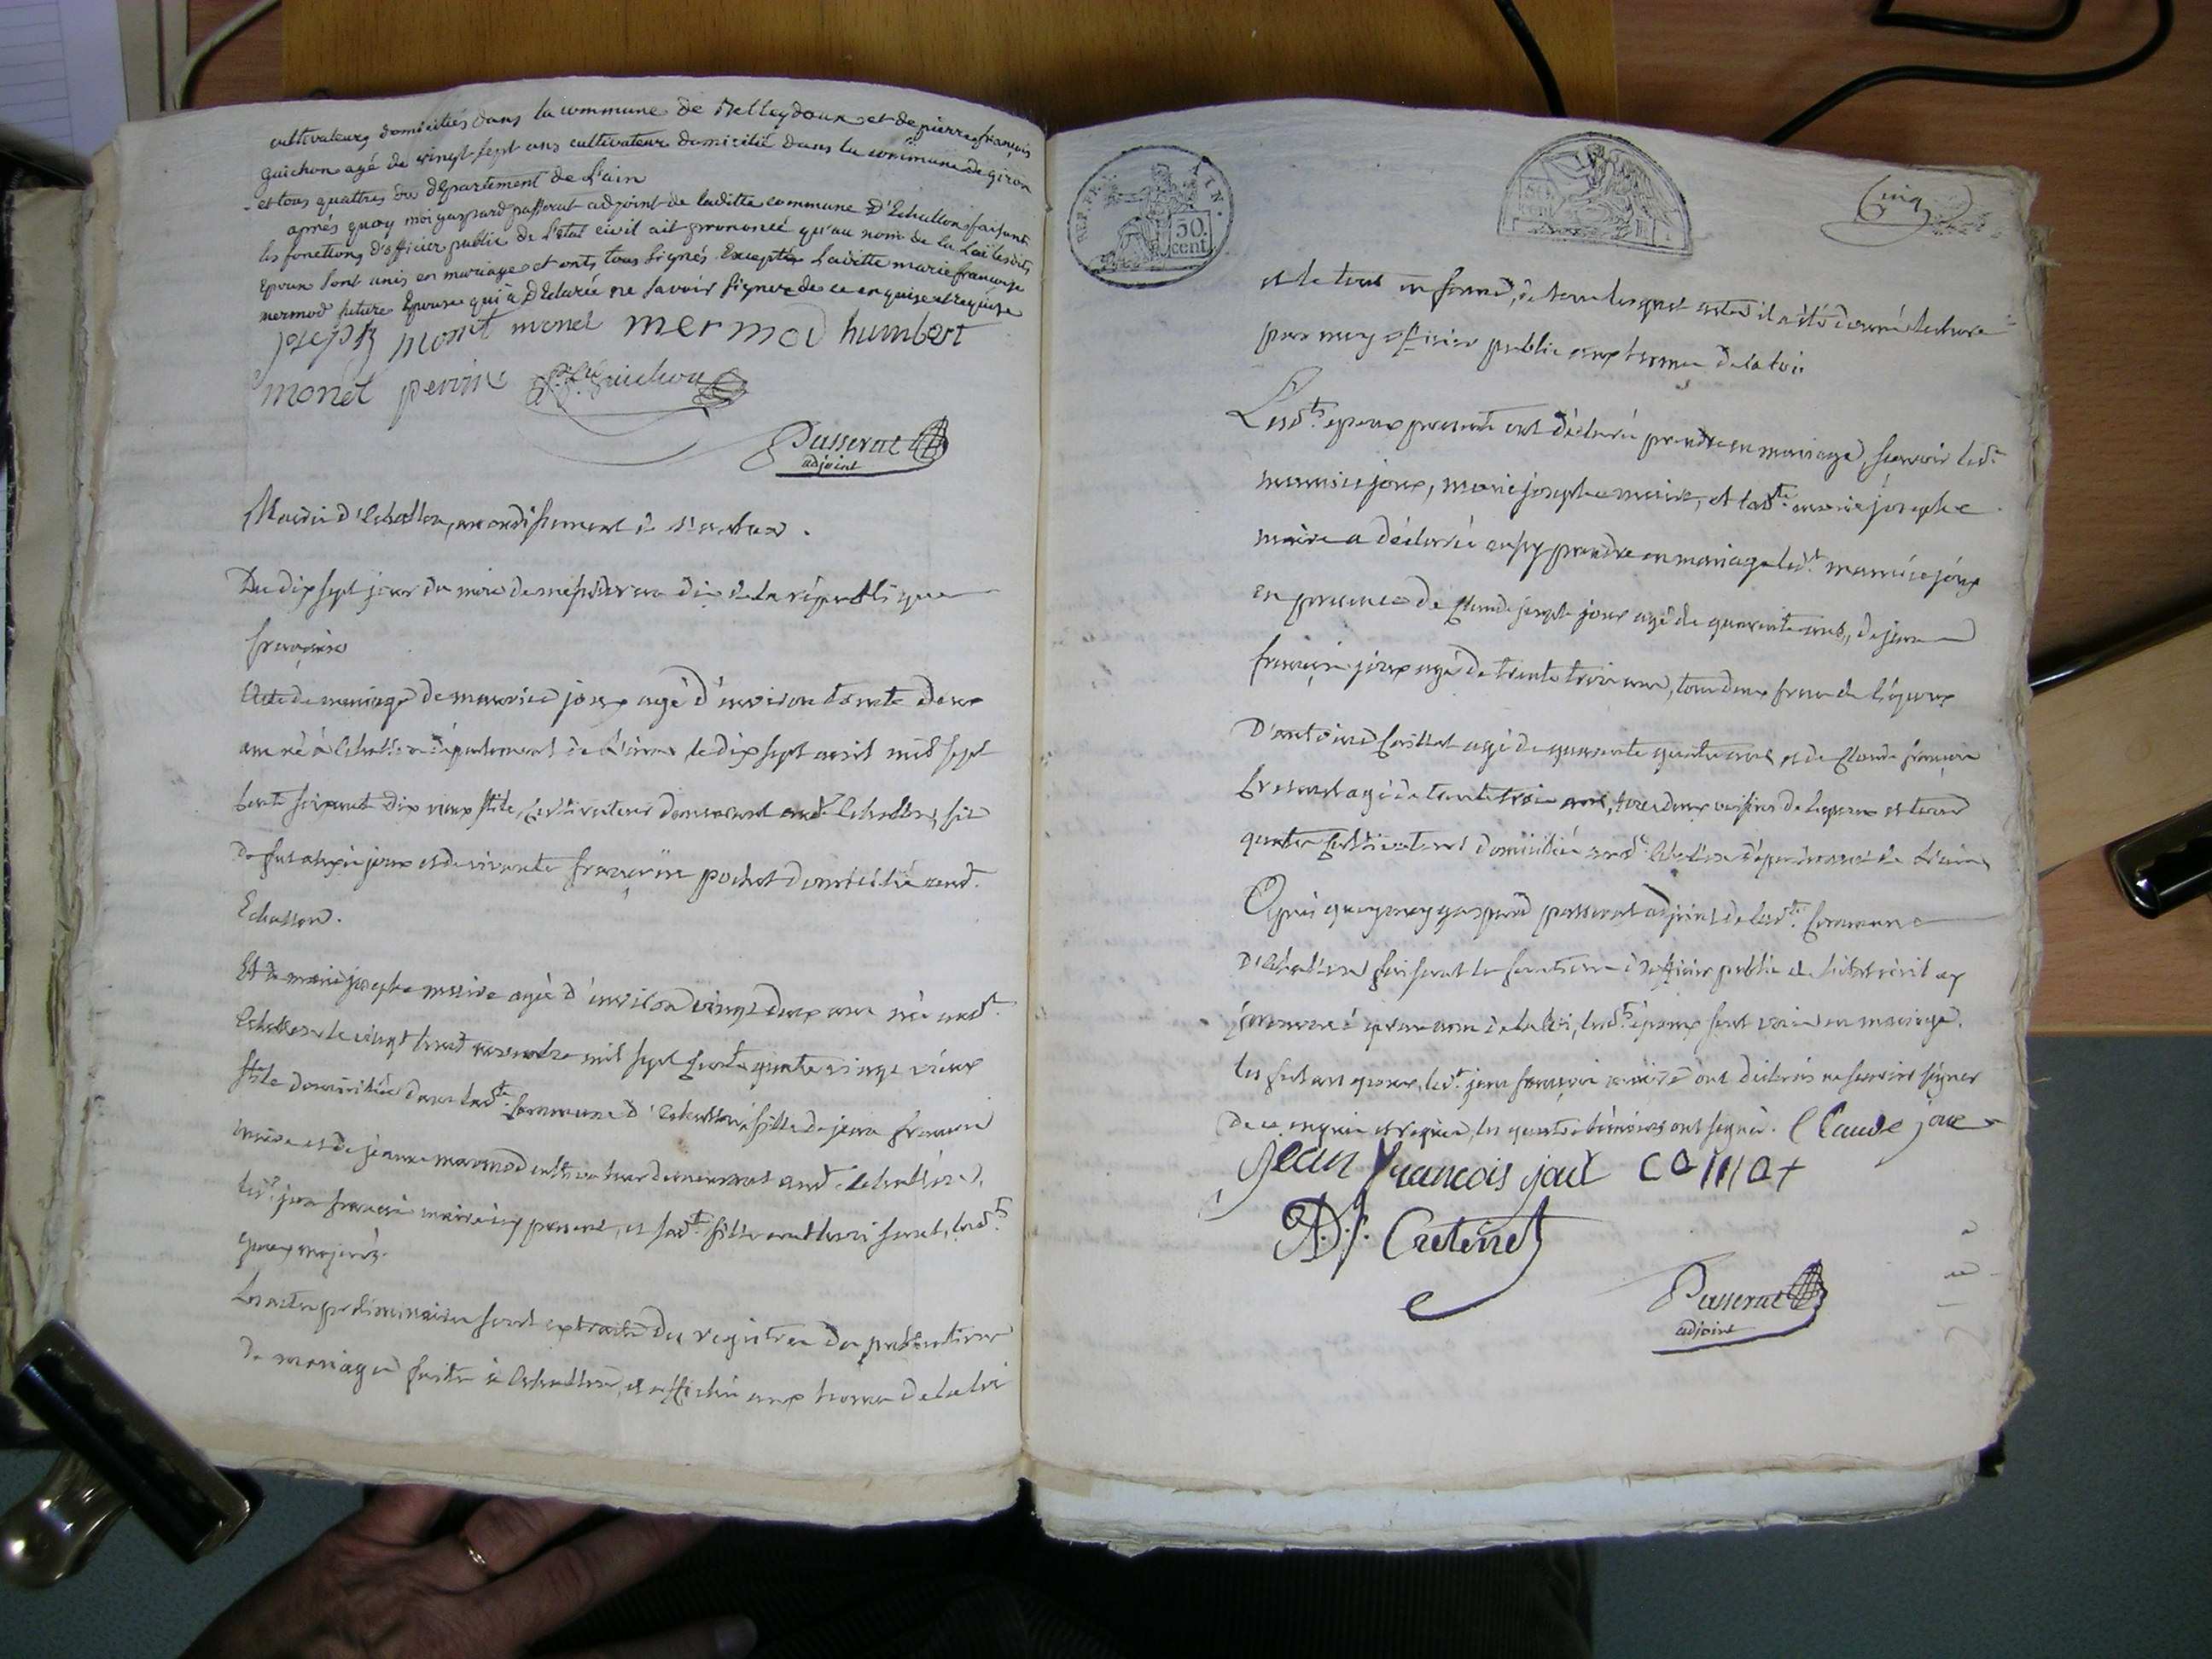 cultivateurs domiciliés dans la commune de Belleydoux et de pierre françois
guichon agé de vingt-sept ans cultivateur domicilié dans la commune de giron
et tous quattres du département de l'ain
aprnés quoy moi gaspard passerat adjoint de laditte commune D'Echallon faisant
les fonctions d'officier public de l'état civil ait prononcé qu'au nom de la Loi lesdits
Epoux sont unis en mariage et onts tous signés Exceptés Laditte marie françoise
mermod future Epouse qui a Déclarée ne savoir signer de ce enquise et requise
joseph monet monet mermod humbert
monet perrine P. f. Guichon
Passerat
adjoint
Mairie d'Echallon, arrondissement de Nantua.
Du dix sept jour du mois de messidor an dix de la république
françoise
Acte de mariage de maurice joux agé d'environ trente deux
ans né à Echallon département de L'ain, le dix sept avril mil sept
cents soixante dix vieux stile, cultivateur demeurant aud. Echallon, fils
de fut alexis joux et de vivante françoise pochet domiciliée aud.
Echallon.
Et de marie josephe maire agée d'environ vingt deux ans née aud.t
Echallon le vingt mil sept cents quatre vingt vieux
stile domiciliée dans lad.te Commune d'Echallon, fille de jean françois
maire et de jeanne marmod cultivateur demeurant aud. Echallon,
led.t jean françois maire icy present, et lad.te fille lesd.ts
epoux majeurs.
Les actes preliminaires sont extraits des registres de publications
de mariages faites à Echallon, et affichés aux termes de la loi
REP. FRA. AIN.
50.
cent
Cinq
et le tout en forme, de tous lesquels actes il a été donné lecture
par moy officier public aux termes de la loi.
Lesd.ts epoux presents ont déclaré prendre en mariage, sçavoir led.t
maurice joux, marie josephe maire, et lad.te marie josephe
maire a déclarée aussy prendre en mariage led.t maurice joux
en presence de Claude joseph joux agé de quarante ans, de jean
françois joux agé de trente trois ans, tous deux freres de l'époux
D'antoine Caillat agé de quarante quatre ans, et de Claude françois
Cretenet agé de trente trois ans, tous deux voisins de l'epoux et tous
quatre cultivateurs domiciliés aud. Echallon département de L'ain
Après quoy moy gaspard passerat adjoint de lad.te Commune
d'Echallon faisant les fonctions d'officier public de l'état civil ay
prononcé qu'au nom de la loi, lesd.ts époux sont unis en mariage.
les futurs epoux, led.t jean françois maire ont déclarés ne sçavoir signer
de ce enquis et requis, les quatre témoins ont signé. Claude joux
Jean françois joux
Cretenet
Passerat
adjoint